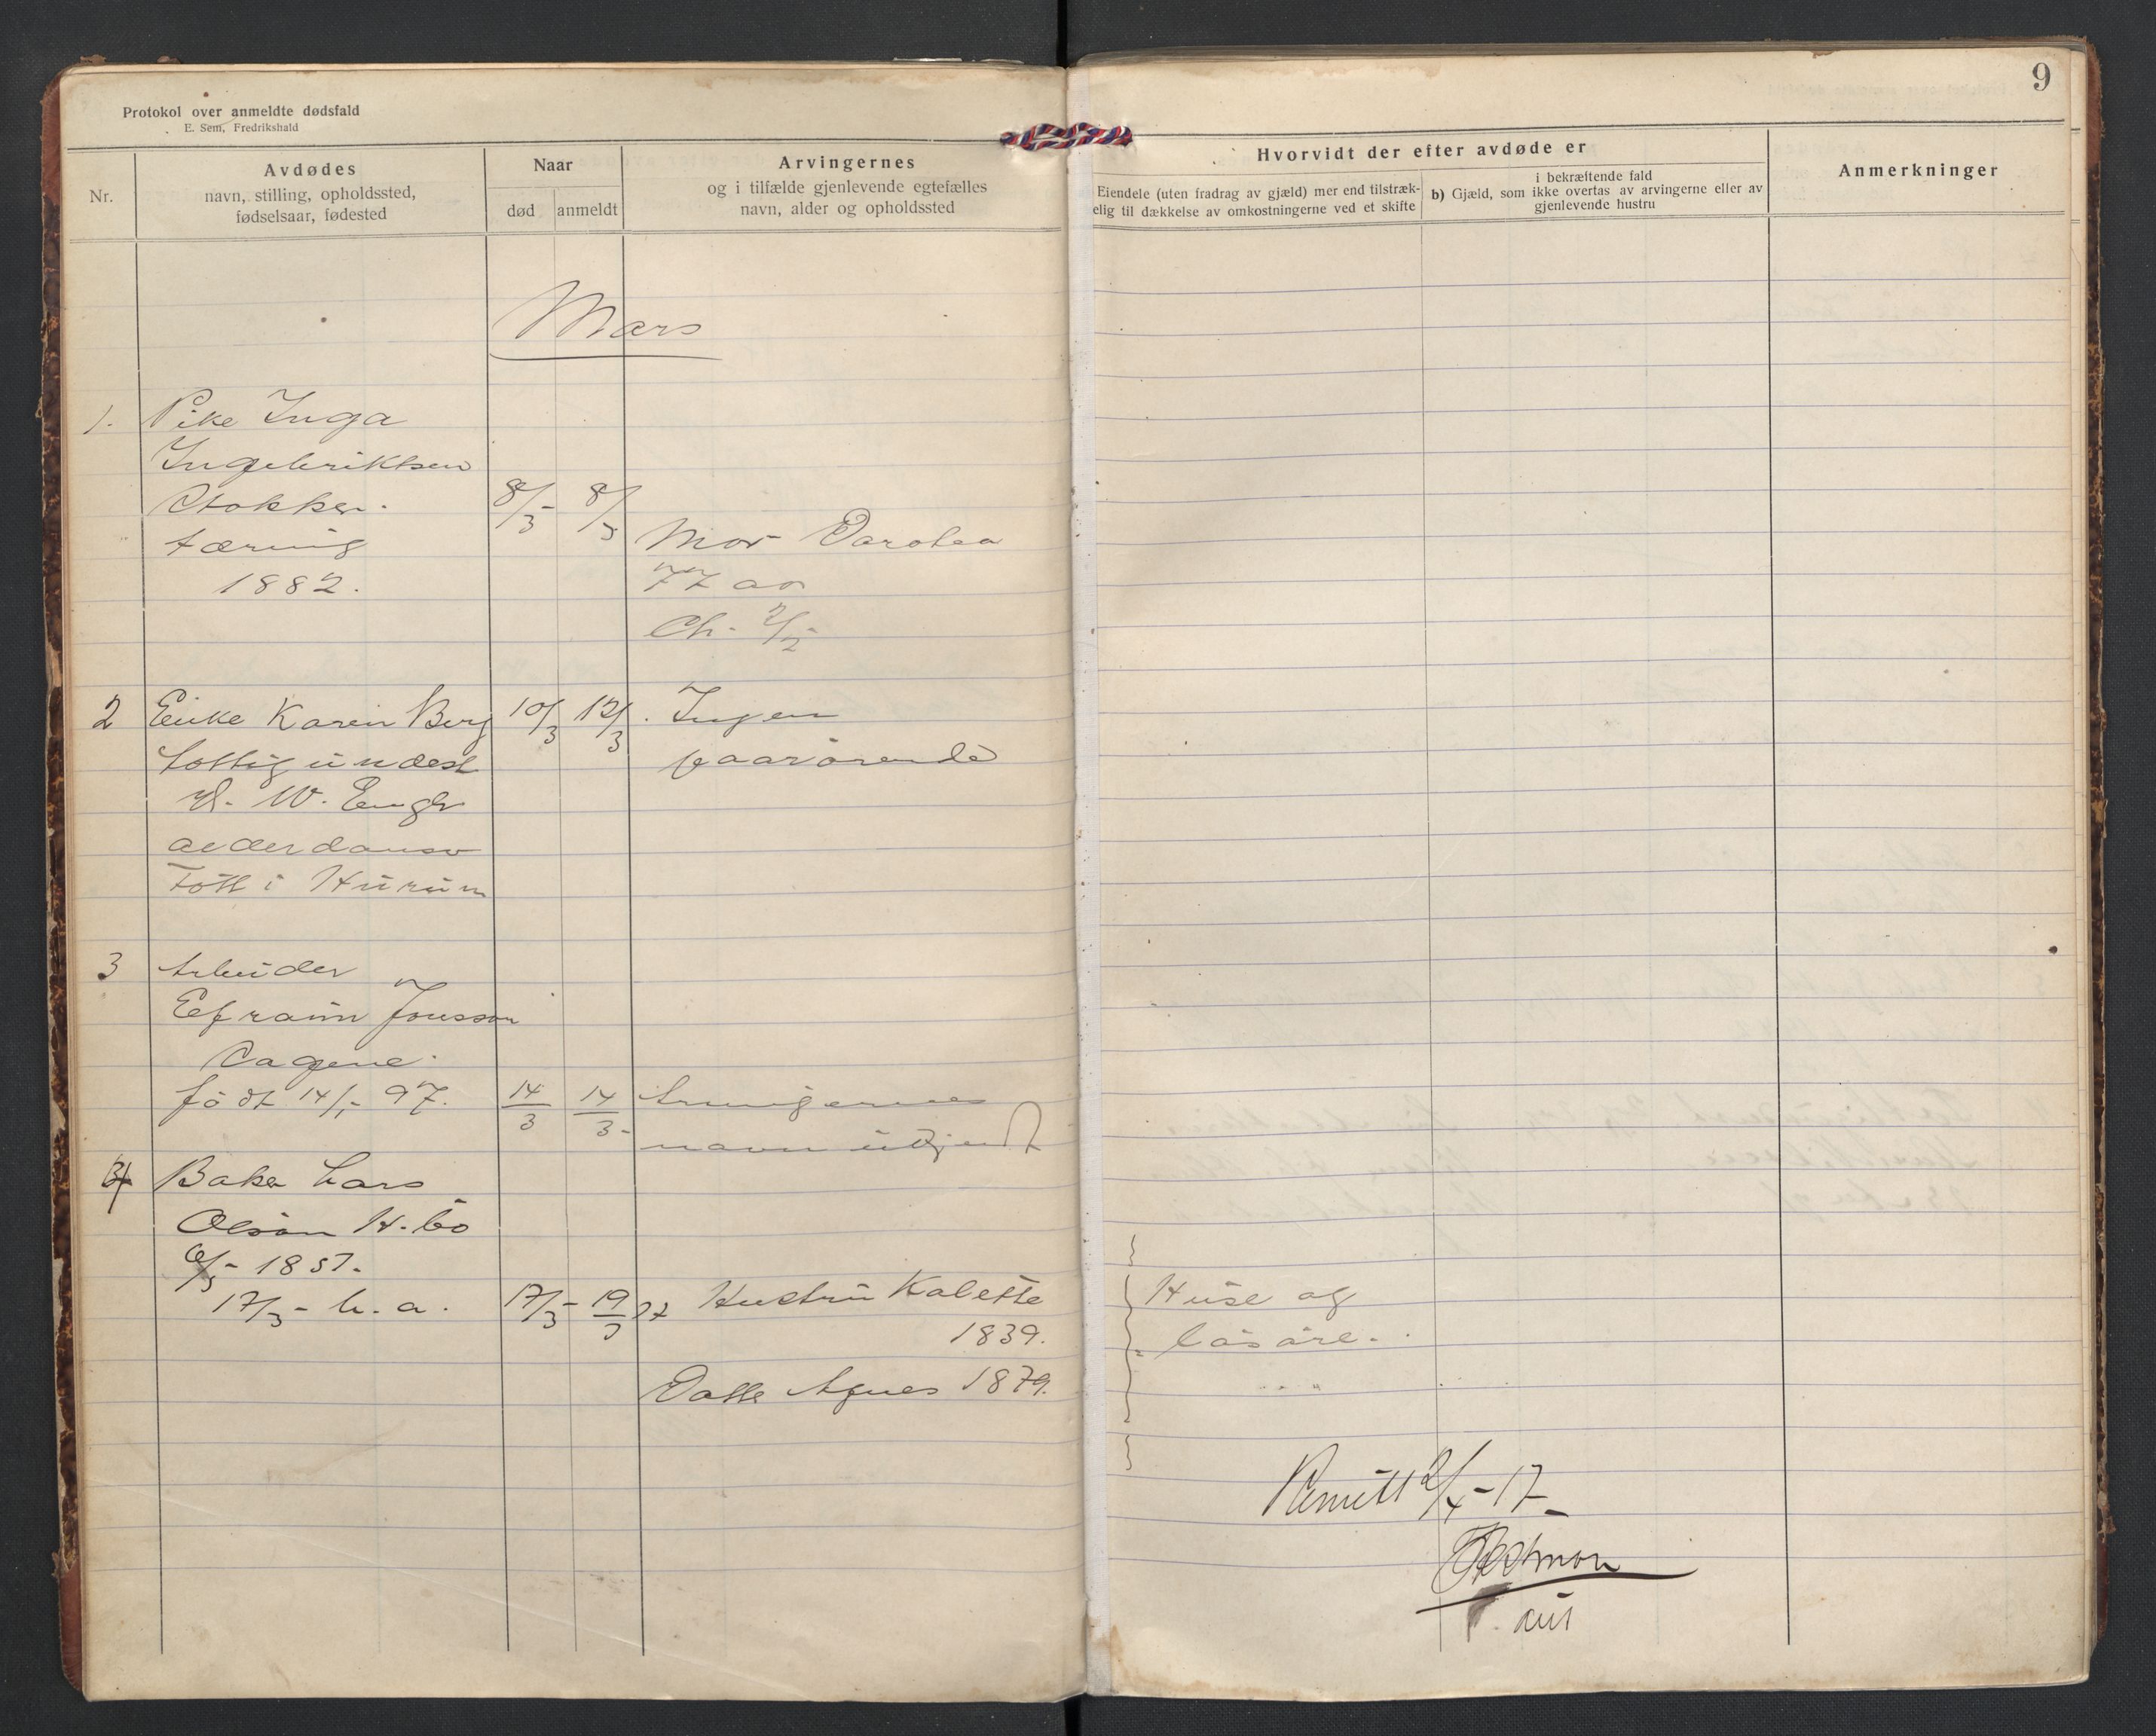 Protokol over anmeldte dødsfald
E. Sem, Fredrikshald
9
Nr.
Avdødes
navn, stilling, opholdssted,
fødselsaar, fødested
Naar
død
anmeldt
Arvingernes
og i tilfælde gjenlevende egtefælles
navn, alder og opholdssted
Hvorvidt der efter avdøde er
Eiendele (uten fradrag av gjæld) mer end tilstræk-
elig til dækkelse av omkostningerne ved et skifte
i bekræftende fald
b) Gjæld, som ikke overtas av arvingerne eller av
gjenlevende hustru
Anmerkninger
Mars
1. Pike Inga
Ingebriktsen
Stokker.
tæring
1882.
8/3 8/3
Mor Dorotea
77 aar
Ch. 2/2
2 Enke Karen Berg 10/3 12/3. Ingen
paarörende
Fattigundest
W. Engh
Född i Hurum
3 Arbeider
Efraim Jonsson
Vagene
född 14/1 97. 14/3 14/3 Arvingernes
navn ukjendt
4 Baker Lars
Olson H. bö
6/5 1857.
17/3 - h. a. 17/3 - 19/3 Hustru Kalette
1839.
Datter Agnes 1879.
Huse og
lösöre.
Remitt 2/4-17
Østmoen